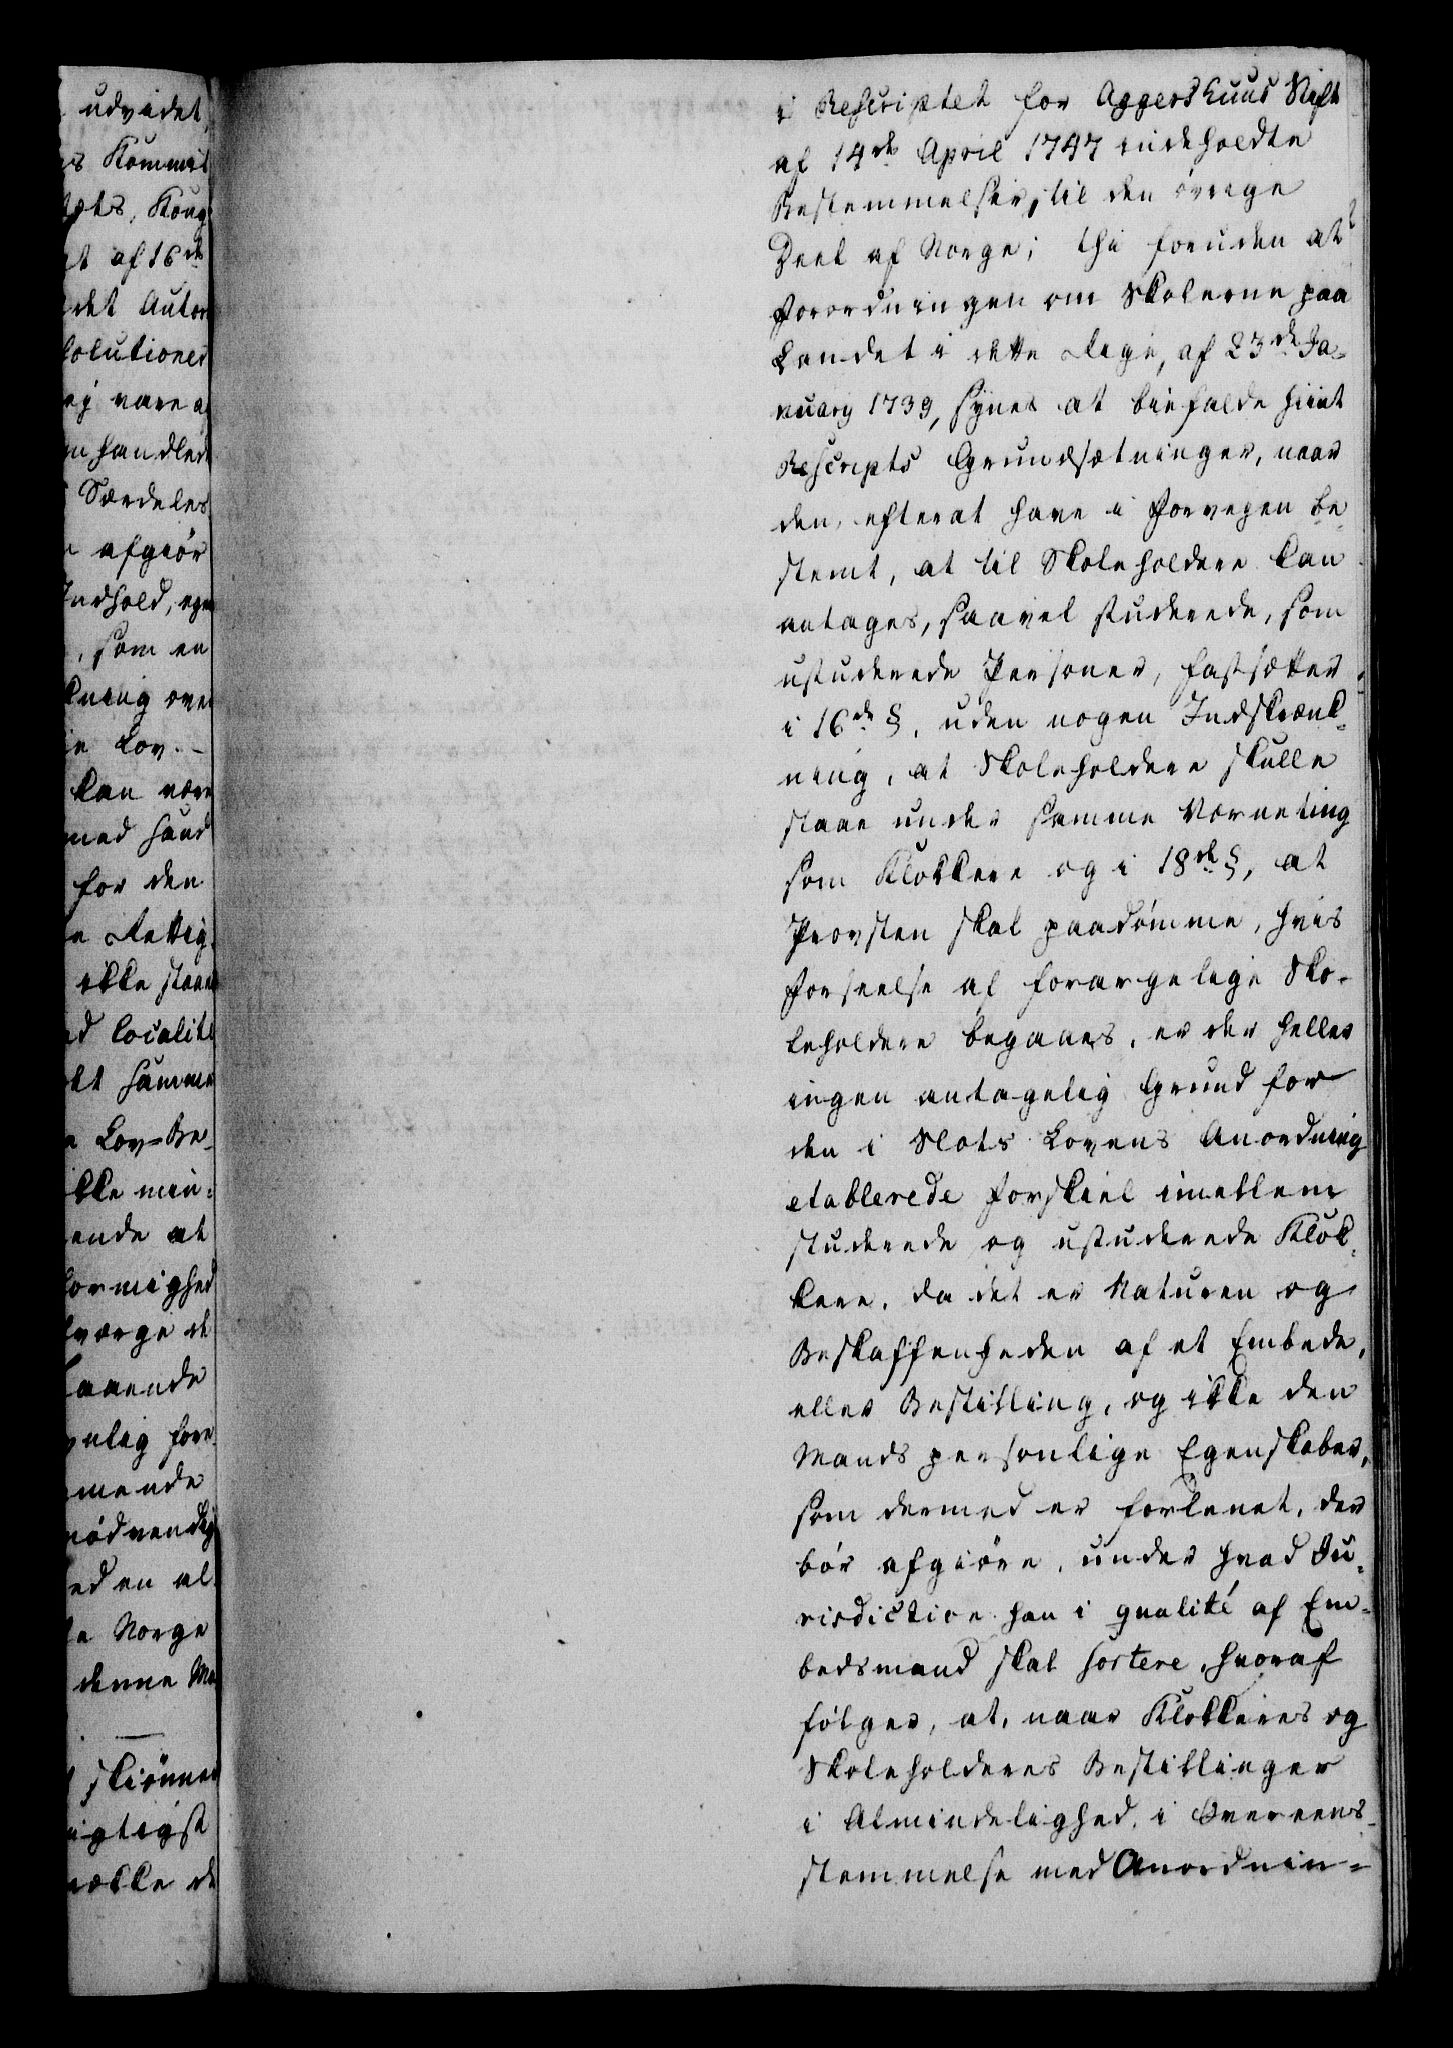 udvidet,
s Kommis
tets, Kong
et af 16de
det Autor
solutioner
ej være a
n handlede
Særdeles
afgiør
Indhold, egen
, som en
kning over
ie Lov. -
kan være
med Haand
for den
e Rettig
ikke staae
d localite
et samme
e Lov=Be-
kke min=
ende at
formighed
værge de
aaende
nlig fore
mende
nødvendig
ed en al
e Norge
denne Ma
skiønner
igtigst
række de
i Rescriptet for Aggershuus Stift
af 14de April 1747 indeholdte
Bestemmelser, til den øvrige
Deel af Norge; thi foruden at
Forordningen om Skolerne paa
Landet i dette Rige, af 23de Ja-
nuary 1739, synes at biefalde hiint
Rescripts Grundsætninger, naar
den, efterat have i Forvegen be-
stemt, at til Skoleholdere kan
antages, saavel studerede, som
ustuderede Personer, fastsætter
i 16de §, uden nogen Indskrænk-
ning, at Skoleholdere skulle
staae under samme Værneting
som Klokkere og i 18de §, at
Provsten skal paadømme, hvis
Forseelse af forargelige Sko-
leholdere begaaes, er der heller
ingen antagelig Grund for
den i Slots Lovens Anordning
etablerede Forskiel imellem
studerede og ustuderede Klok-
kere, da det er Naturen og
Beskaffenheden af et Embede,
eller Bestilling, og ikke den
Mands personlige Egenskaber,
som dermed er forlenet, der
bør afgiøre, under hvad Ju-
risdiction han i qualité af Em-
bedsmand skal sortere, hvoraf
følger, at, naar Klokkeres og
Skoleholderes Bestillinger
i Almindelighed, i Overeens-
stemmelse med Anordnin=